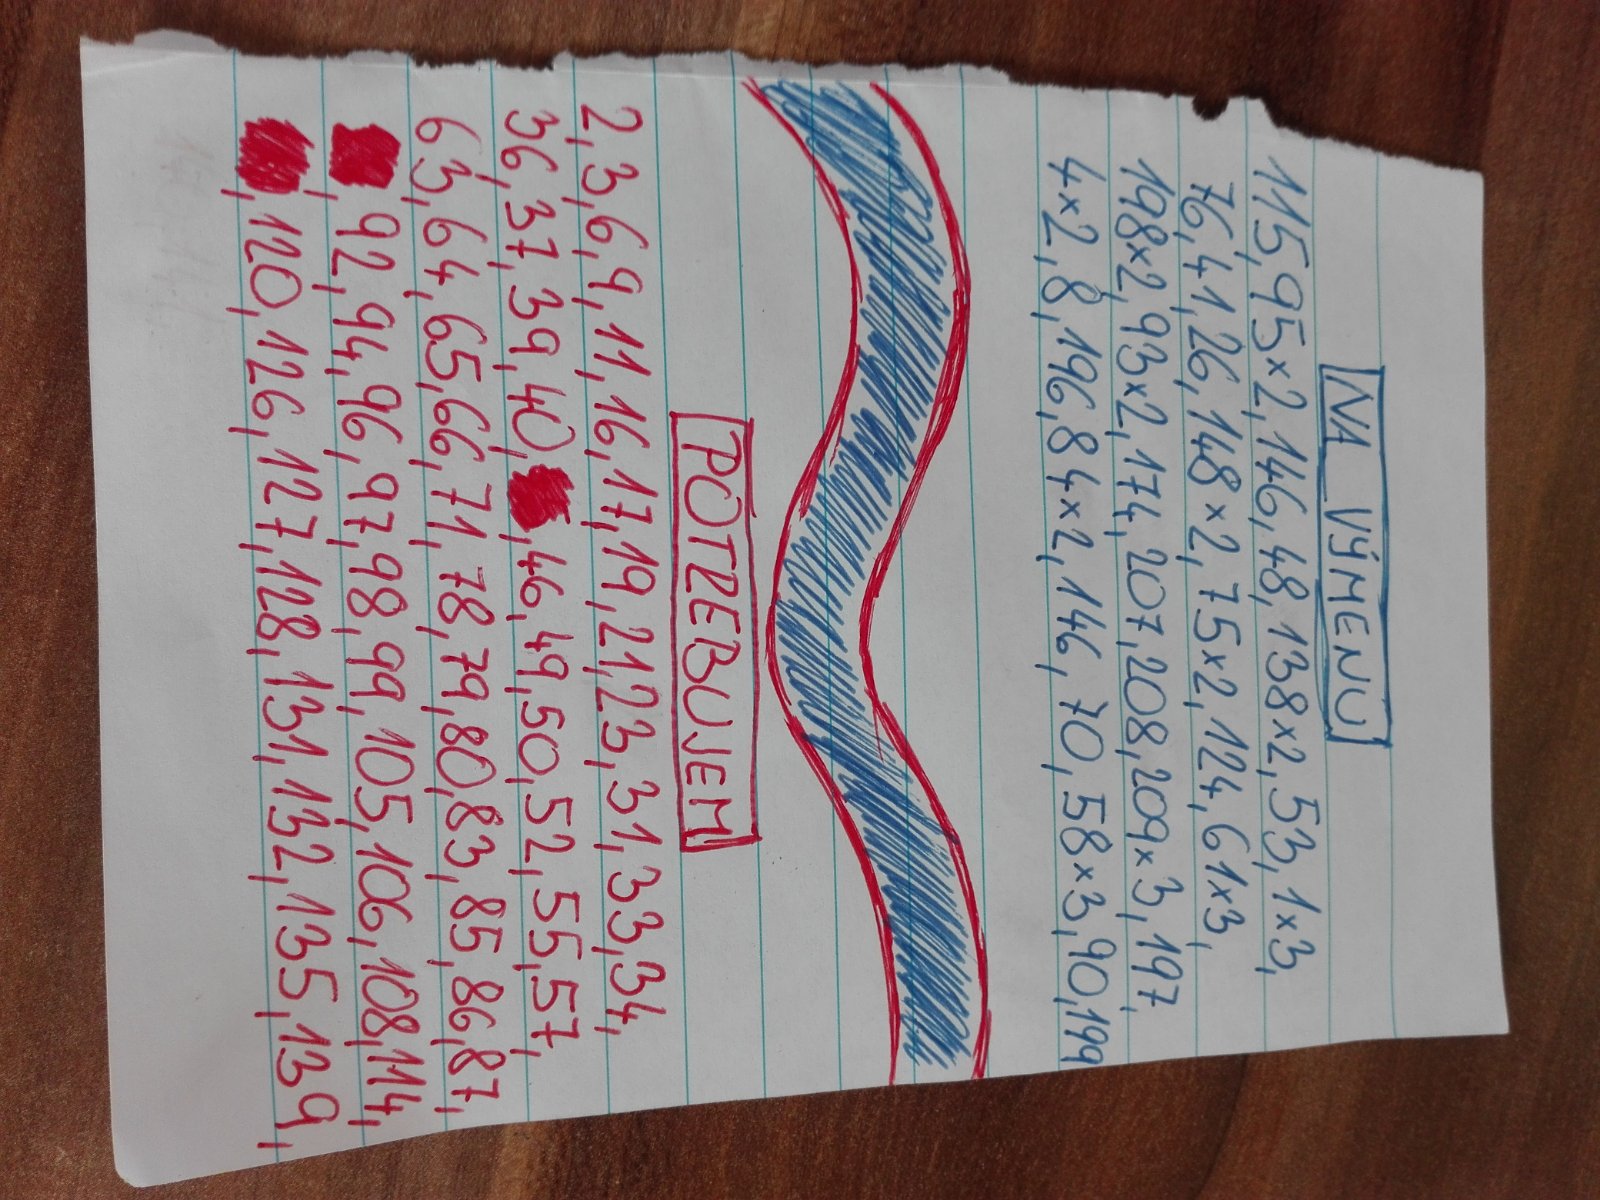 NA VÝMENU
115,95x2,146,48,138x2,53,1x3,
76,41,26,148x2,75x2,124,61x3,
198x2,93x2,174,207,208,209x3,197,
4x2,8,196,84x2,146,70,58x3,90,199
POTREBUJEM
2,3,6,9,11,16,17,19,21,23,31,33,34,
36,37,39,40,,46,49,50,52,55,57,
63,64,65,66,71,78,79,80,83,85,86,87,
,92,94,96,97,98,99,105,106,108,114,
,120,126,127,128,131,132,135,139,